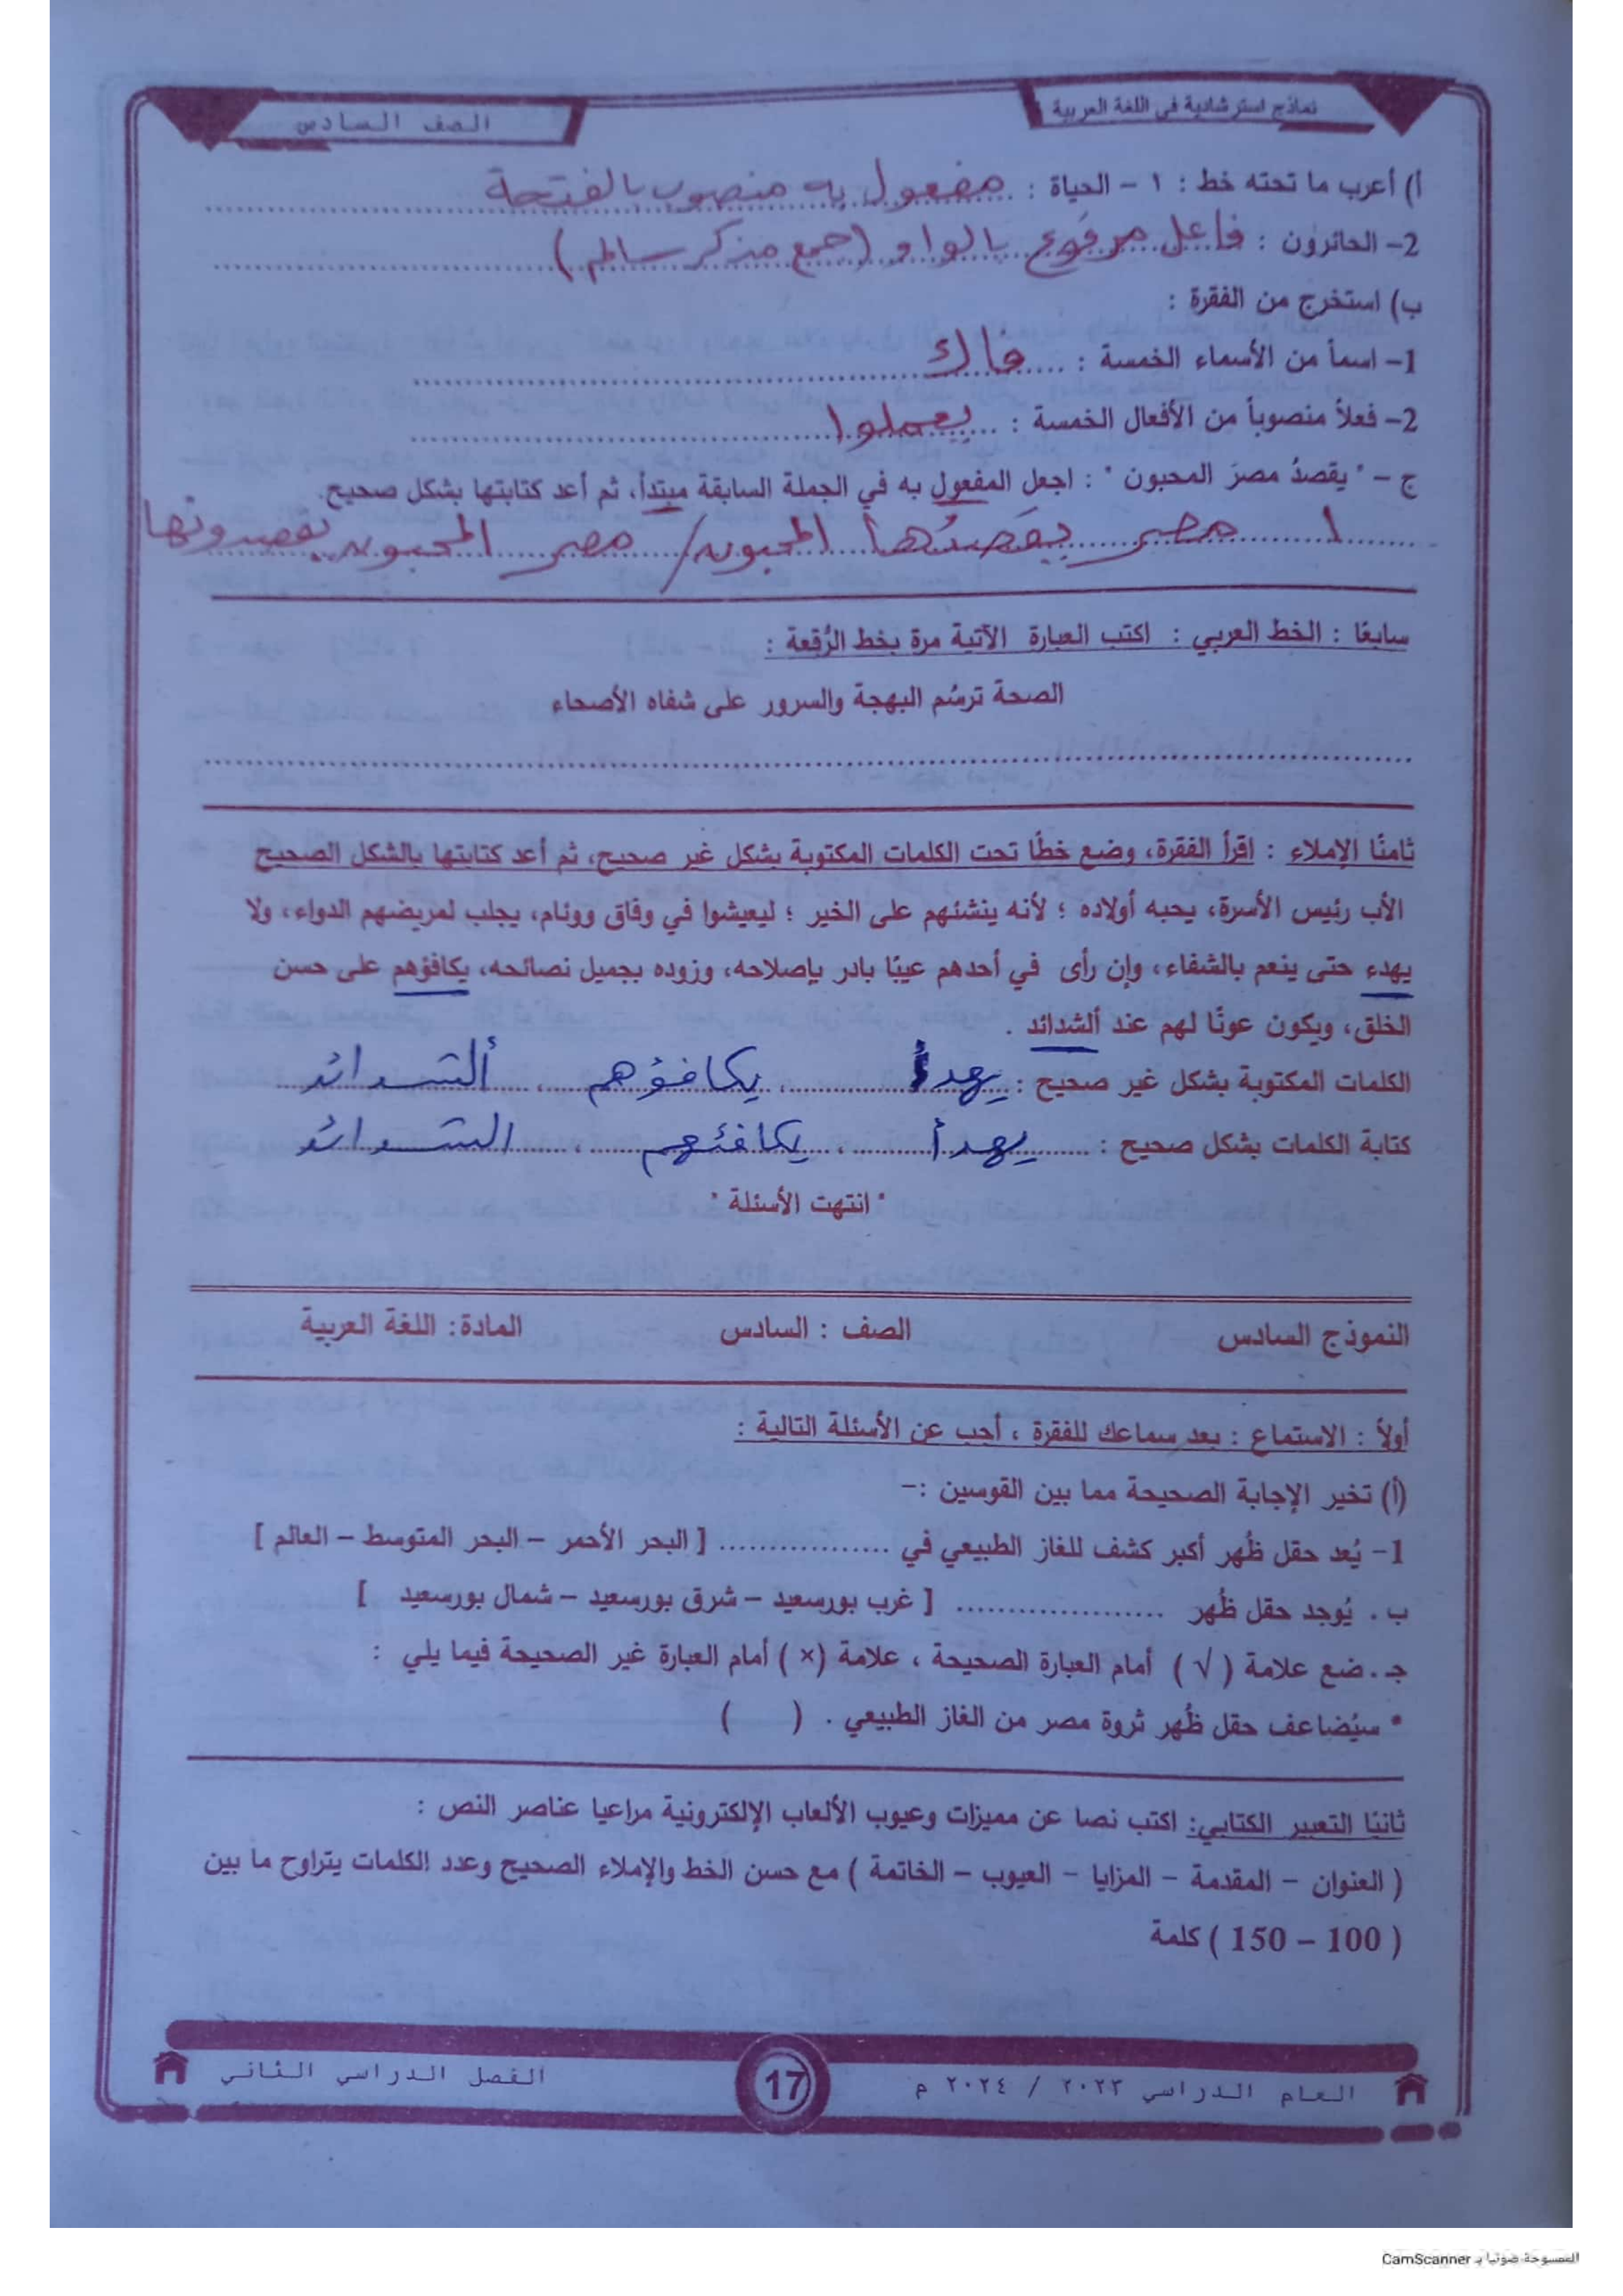 نماذج استرشادية في اللغة العربية
الصف السادس
أ) أعرب ما تحته خط : ١ - الحياة : مفعول به منصوب بالفتحة
2- الحائرون : فاعل مرفوع بالواو (جمع مذكر سالم)
ب) استخرج من الفقرة :
1- اسماً من الأسماء الخمسة :
2- فعلاً منصوباً من الأفعال الخمسة : يعملوا
ج - " يقصدُ مصرَ المحبون " : اجعل المفعول به في الجملة السابقة مبتدأ، ثم أعد كتابتها بشكل صحيح.
مصر يقصدُها المحبون / مصر المحبون يقصدونها
سابعًا : الخط العربي : اكتب العبارة الآتية مرة بخط الرُقعة :
الصحة ترسُم البهجة والسرور على شفاه الأصحاء
ثامنًا الإملاء : اقرأ الفقرة، وضع خطًا تحت الكلمات المكتوبة بشكل غير صحيح، ثم أعد كتابتها بالشكل الصحيح
الأب رئيس الأسرة، يحبه أولاده ؛ لأنه ينشئهم على الخير ؛ ليعيشوا في وفاق ووئام، يجلب لمريضهم الدواء، ولا
يهدء حتى ينعم بالشفاء، وإن رأى في أحدهم عيبًا بادر بإصلاحه، وزوده بجميل نصائحه، يكافؤهم على حسن
الخلق، ويكون عونًا لهم عند ألشدائد .
الكلمات المكتوبة بشكل غير صحيح : يهدء ، يكافؤهم ، ألشدائد
كتابة الكلمات بشكل صحيح : يهدأ ، يكافئهم ، الشدائد
" انتهت الأسئلة "
النموذج السادس الصف : السادس المادة: اللغة العربية
أولاً : الاستماع : بعد سماعك للفقرة ، أجب عن الأسئلة التالية :
(أ) تخير الإجابة الصحيحة مما بين القوسين :-
1- يُعد حقل ظُهر أكبر كشف للغاز الطبيعي في ................. [ البحر الأحمر – البحر المتوسط – العالم ]
ب . يُوجد حقل ظُهر ..................... [ غرب بورسعيد – شرق بورسعيد – شمال بورسعيد ]
جـ . ضع علامة ( √ ) أمام العبارة الصحيحة ، علامة (×) أمام العبارة غير الصحيحة فيما يلي :
* سيُضاعف حقل ظُهر ثروة مصر من الغاز الطبيعي . ( )
ثانيًا التعبير الكتابي: اكتب نصا عن مميزات وعيوب الألعاب الإلكترونية مراعيا عناصر النص :
( العنوان – المقدمة – المزايا – العيوب – الخاتمة ) مع حسن الخط والإملاء الصحيح وعدد الكلمات يتراوح ما بين
( 100 – 150 ) كلمة
العام الدراسي ٢٠٢٣ / ٢٠٢٤ م
17
الفصل الدراسي الثاني
الممسوحة ضوئيا بـ CamScanner